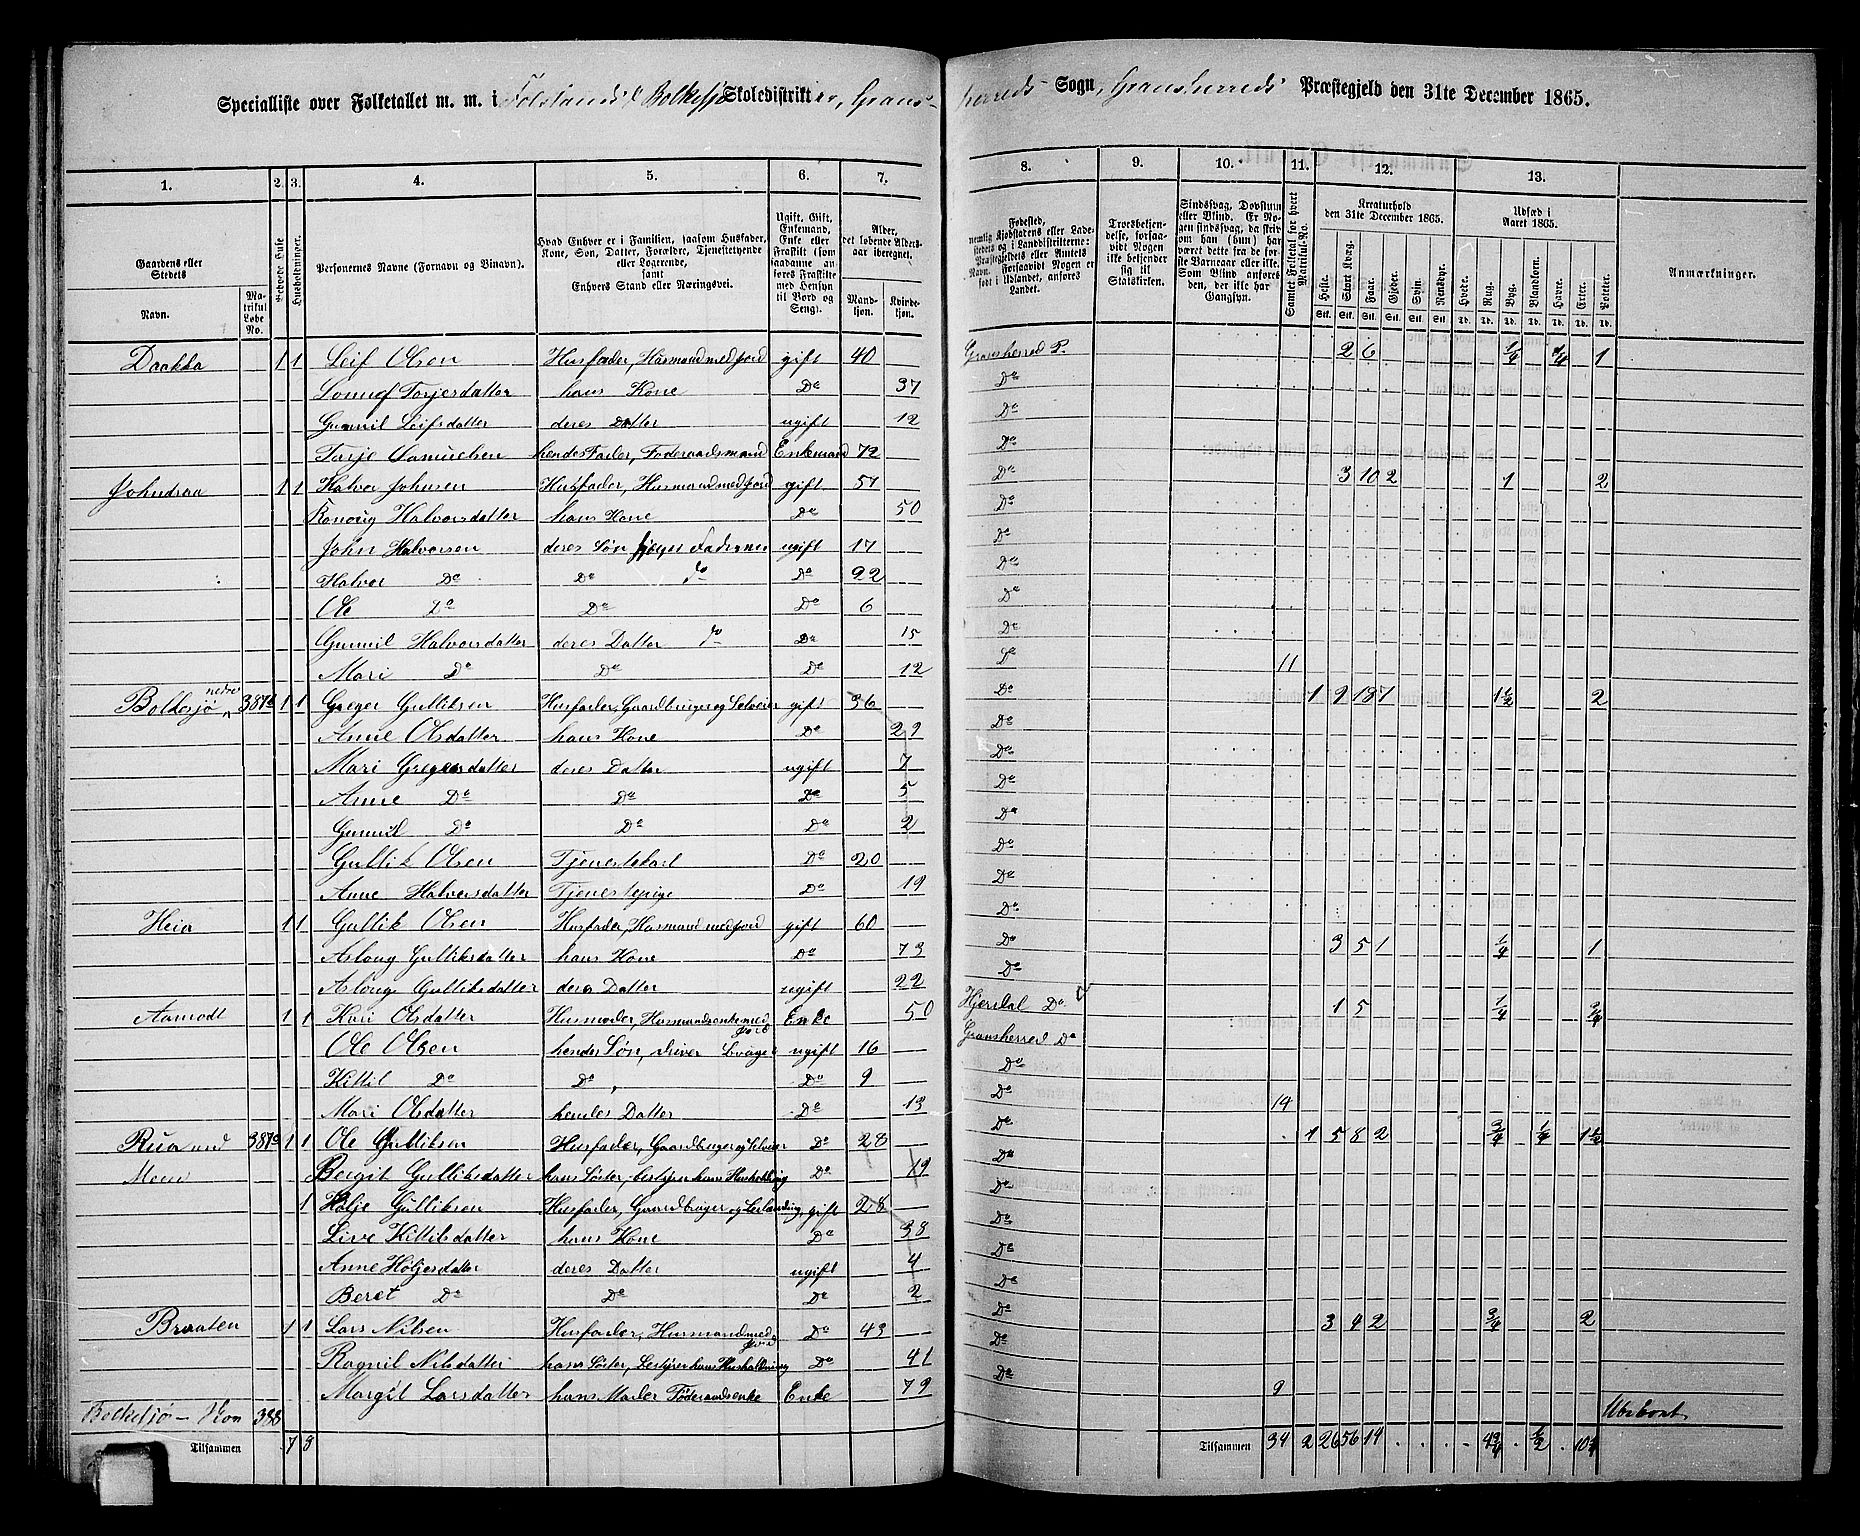 Specialliste over Folketallet m. m. i Folelands & Bolkesjø Skoledistrikter, Grans-herreds Sogn, Gransherreds Præstegjeld den 31te December 1865.
1. 2. 3. 4. 5. 6. 7. 8. 9. 10. 11. 12. 13.
Gaardens eller Stedets
Navn.
Matrikul Løbe No.
Bebode Huse
Husholdninger.
Personernes Navne (Fornavn og Tilnavn).
Hvad Enhver er i Familien, saasom Husfader, Kone, Søn, Datter, Forældre, Tjenestetyende eller Logerende, samt Enhvers Stand eller Næringsvei.
Ugift, Gift, Enkemand, Enke eller Fraskilt (som saadanne anføres Fraskilte med Hensyn til Bord og Seng).
Alder, det løbende Aldersaar iberegnet.
Mandkjøn. Kvindekjøn.
Fødested, nemlig Kjøbstadens eller Ladestedets og i Landdistrikterne: Præstegjeldets eller Annexets Navn. Forsaavidt Nogen er født i Udlandet, anføres Landet.
Troesbekjendelse, forsaavidt Nogen ikke bekjender sig til Statskirken.
Sindssvag, Døvstum eller Blind. Er Nogen sindssvag, da skrives om han (hun) har været dette fra de første Barneaar eller ikke. Som Blind anføres den, der ikke har Gangsyn.
Samlet Folketal for hvert Matrikul-No.
Kreaturhold den 31te December 1865.
Heste. Stort Kvæg. Faar. Gjeder. Svin. Rensdyr.
Udsæd i Aaret 1865.
Hvede. Rug. Byg. Blandkorn. Havre. Erter. Poteter.
Anmærkninger.
Daakka 1 1 Leif Olsen Husfader, Husmand med Jord gift 40 Gransherred P. 2 6 1/4 1/4 1
Torjersdatter hans Kone Do 37 Do
Gunnil Leifsdatter deres Datter ugift 12 Do
Torje Samuelsen hendes Fader, Føderaadsmand Enkemand 72 Do
Johndraa 1 1 Halvor Johnsen Husfader, Husmand med Jord gift 51 Do 3 10 2 1 2
Ronoug Halvorsdatter hans Kone Do 50 Do
John Halvorsen deres Søn ugift 17 Do
Halvor Do Do do Do 22 Do
Ole Do Do Do 6 Do
Gunnil Halvorsdatter deres Datter do Do 15 Do
Mari Do Do Do 12 Do 11
Bolkesjø nedre 387a 1 1 Greger Gulliksen Husfader, Gaardbruger og Selveier gift 36 Do 1 9 18 7 1 1/2 2
Anne Olsdatter hans Kone Do 29 Do
Mari Gregersdatter deres Datter ugift 7 Do
Anne Do Do Do 5 Do
Gunnil Do Do Do 2 Do
Gullik Olsen Tjenestekarl Do 20 Do
Anne Halvorsdatter Tjenestepige Do 19 Do
Heia 1 1 Gullik Olsen Husfader, Husmand med Jord gift 60 Do 3 5 1 1/4 1
Asloug Gulliksdatter hans Kone Do 73 Do
Asloug Gulliksdatter deres Datter ugift 22 Do
Aamodt 1 1 Kari Olsdatter Husmoder, Husmandsenke med Jord Enke 50 Hjerdal Do 1 5 1/4 3/4
Ole Olsen hendes Søn, driver Bruget ugift 16 Gransherred Do
Kittil Do Do, Do 9 Do
Mari Olsdatter hendes Datter Do 13 Do 14
Rua med Moen 387c 1 1 Ole Gulliksen Husfader, Gaardbruger og Selveier Do 28 Do 1 5 8 2 3/4 1/4 1 1/2
Bergit Gulliksdatter hans Søster, bestyrer hans Husholdning Do 19 Do
1 Høljo Gulliksen Husfader, Gaardbruger og gift 28 Do
Live Kittilsdatter hans Kone Do 38 Do
Anne Høljesdatter deres Datter ugift 4 Do
Beret Do Do Do 2 Do
Braaten 1 1 Lars Nilsen Husfader, Husmand med Jord Do 43 Do 3 4 2 3/4 2
Ragnil Nilsdatter hans Søster, bestyrer hans Husholdning Do 41 Do
Margit Larsdatter hans Moder Føderaadsenke Enke 79 Do 9
Bolkesjø- 388 Ubeboet
Tilsammen 7 8 Tilsammen 34 2 26 56 14 4 3/4 1/2 10 1/4